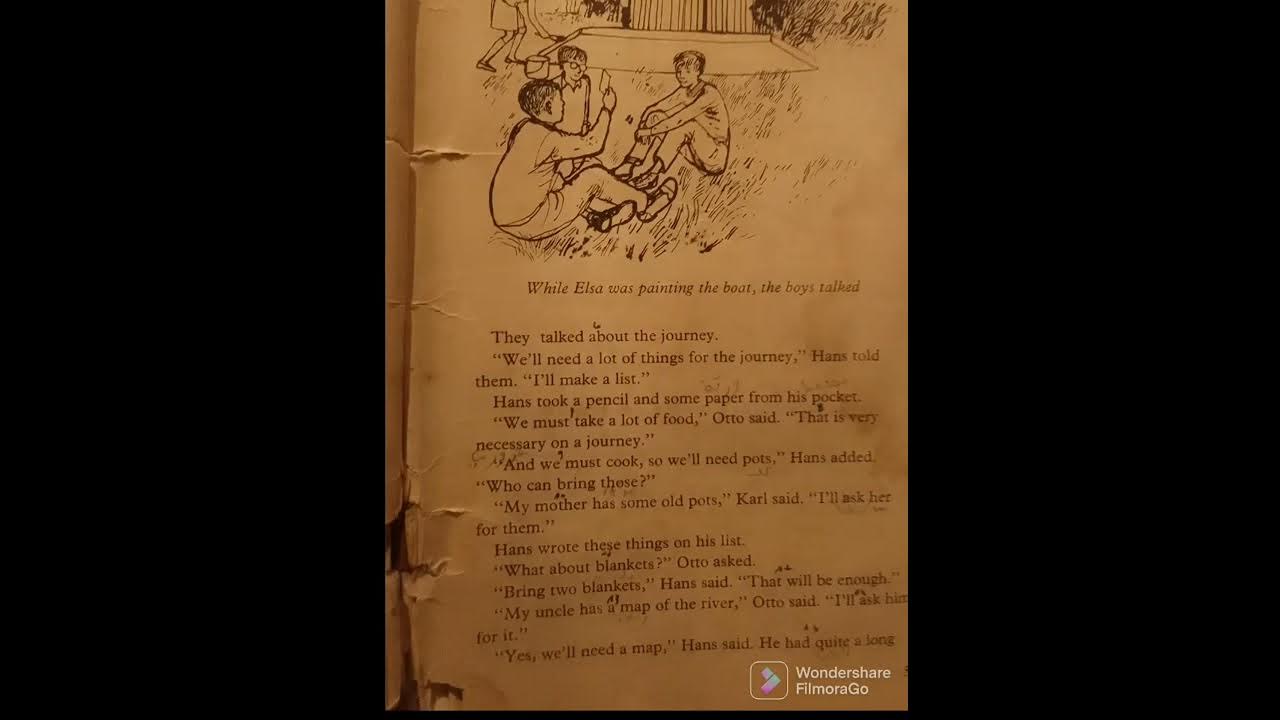 While Elsa was painting the boat, the boys talked
They talked about the journey.
“We’ll need a lot of things for the journey,” Hans told
them. “I’ll make a list.”
Hans took a pencil and some paper from his pocket.
“We must take a lot of food,” Otto said. “That is very
necessary on a journey.”
“And we must cook, so we’ll need pots,” Hans added.
“Who can bring those?”
“My mother has some old pots,” Karl said. “I’ll ask her
for them.”
Hans wrote these things on his list.
“What about blankets?” Otto asked.
“Bring two blankets,” Hans said. “That will be enough.”
“My uncle has a map of the river,” Otto said. “I’ll ask him
for it.”
“Yes, we’ll need a map,” Hans said. He had quite a long
Wondershare
FilmoraGo